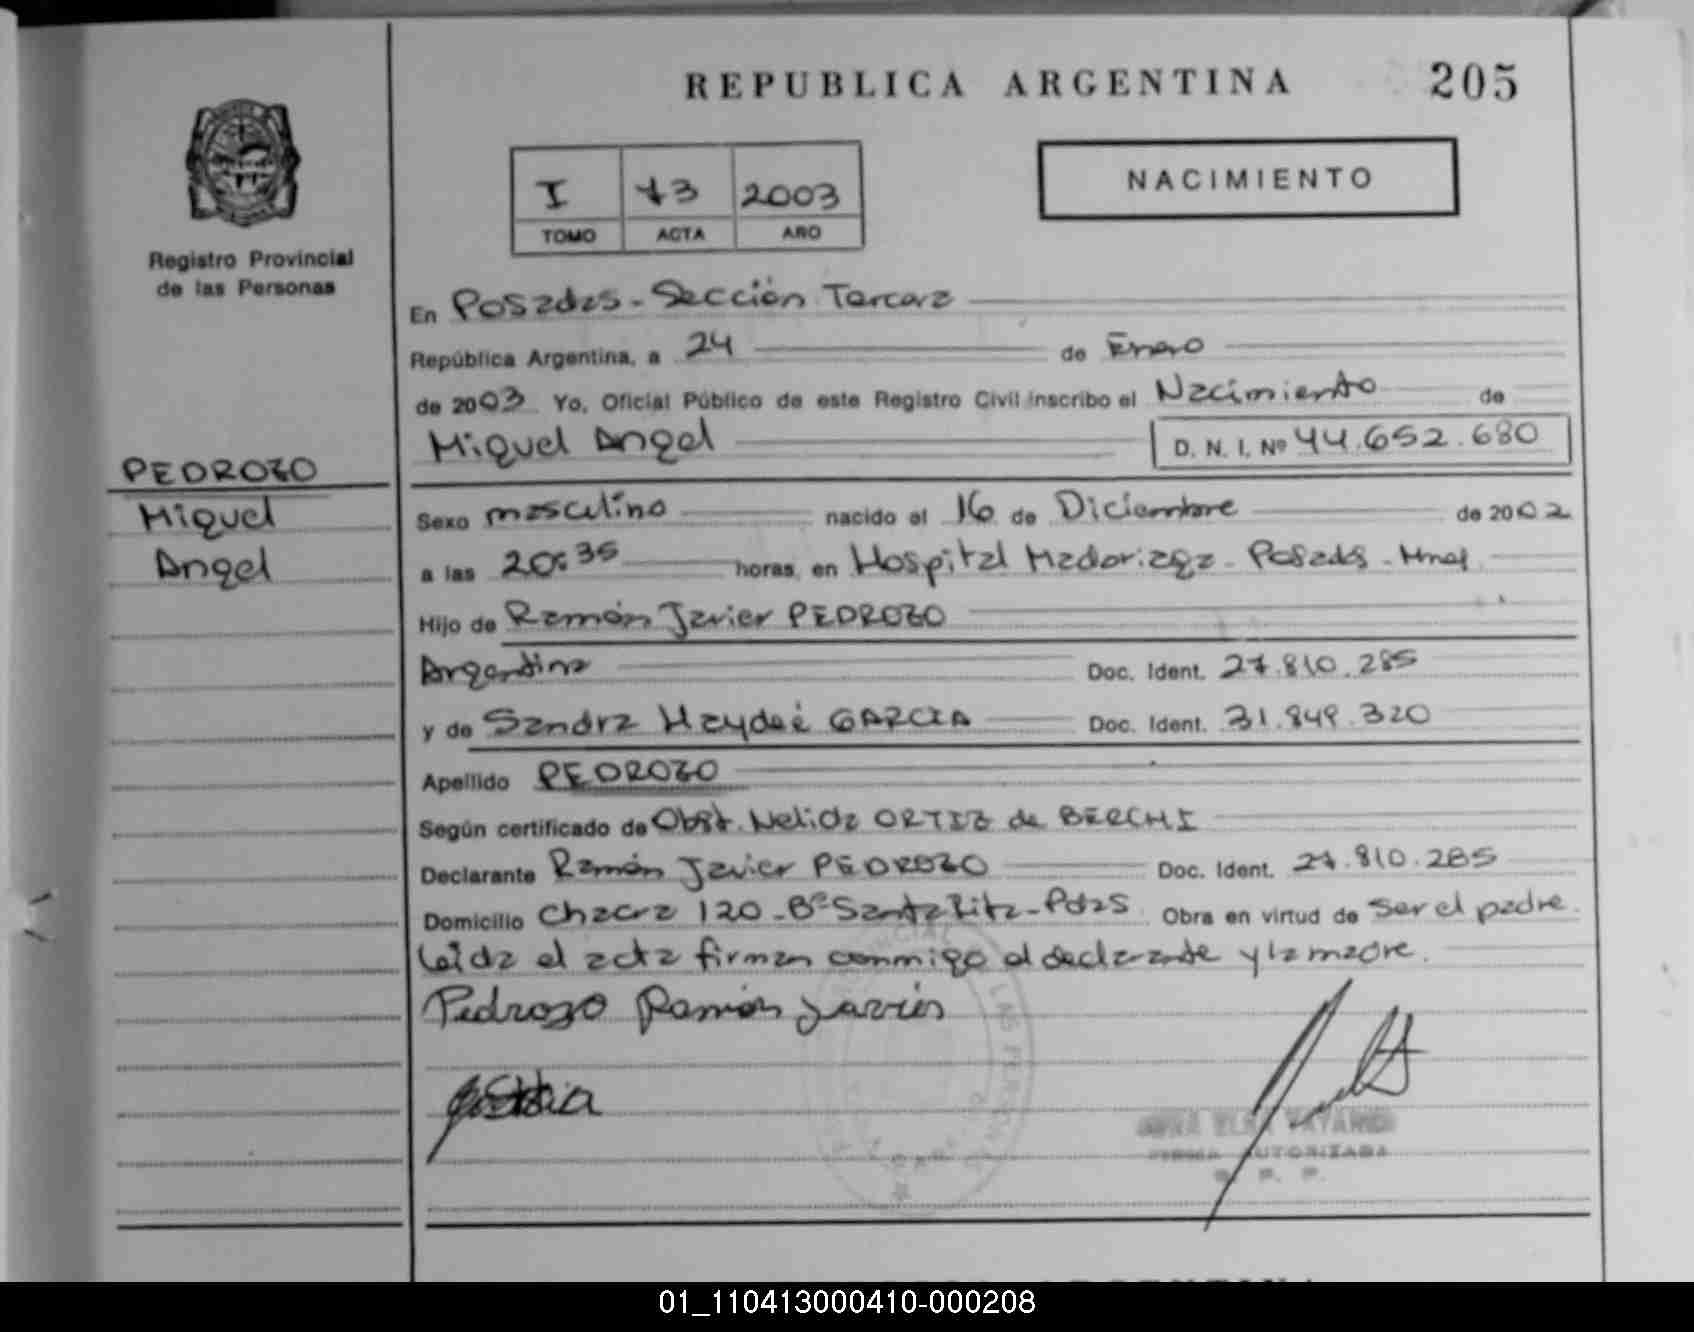 REPUBLICA ARGENTINA 205
NACIMIENTO
I 73 2003
TOMO ACTA AÑO
Registro Provincial
de las Personas
En Posadas - Sección Tercera
República Argentina, a 24 de Enero
de 2003 Yo, Oficial Público de este Registro Civil inscribo el Nacimiento de
Miguel Angel D. N. I. Nº 44.652.680
PEDROZO
Miguel
Angel
Sexo masculino nacido el 16 de Diciembre de 2002
a las 20:35 horas, en Hospital Madariaga - Posadas - Mnes
Hijo de Ramón Javier PEDROZO
Argentina Doc. Ident. 27.810.285
y de Sandra Haydeé GARCIA Doc. Ident. 31.849.320
Apellido PEDROZO
Según certificado de Obst. Nelida ORTIZ de BERCHI
Declarante Ramón Javier PEDROZO Doc. Ident. 27.810.285
Domicilio Chacra 120 - Bº Santa Rita - Pdas Obra en virtud de ser el padre.
Leida el acta firman conmigo el declarante y la madre.
Pedrozo Ramón Javier
FIRMA AUTORIZADA
R. P. P.
01_110413000410-000208